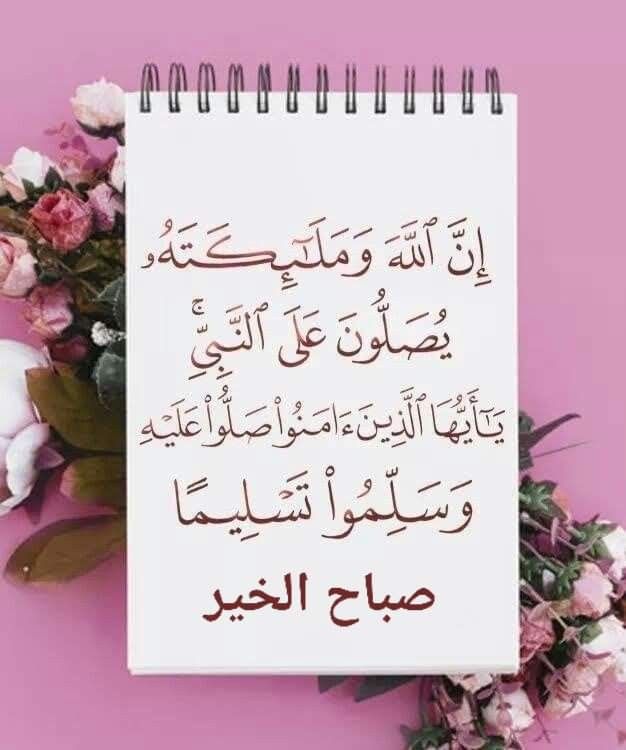 إِنَّ ٱللَّهَ وَمَلَـٰٓئِكَتَهُۥ
يُصَلُّونَ عَلَى ٱلنَّبِيِّ ۚ
يَـٰٓأَيُّهَا ٱلَّذِينَ ءَامَنُوا۟ صَلُّوا۟ عَلَيْهِ
وَسَلِّمُوا۟ تَسْلِيمًا
صباح الخير